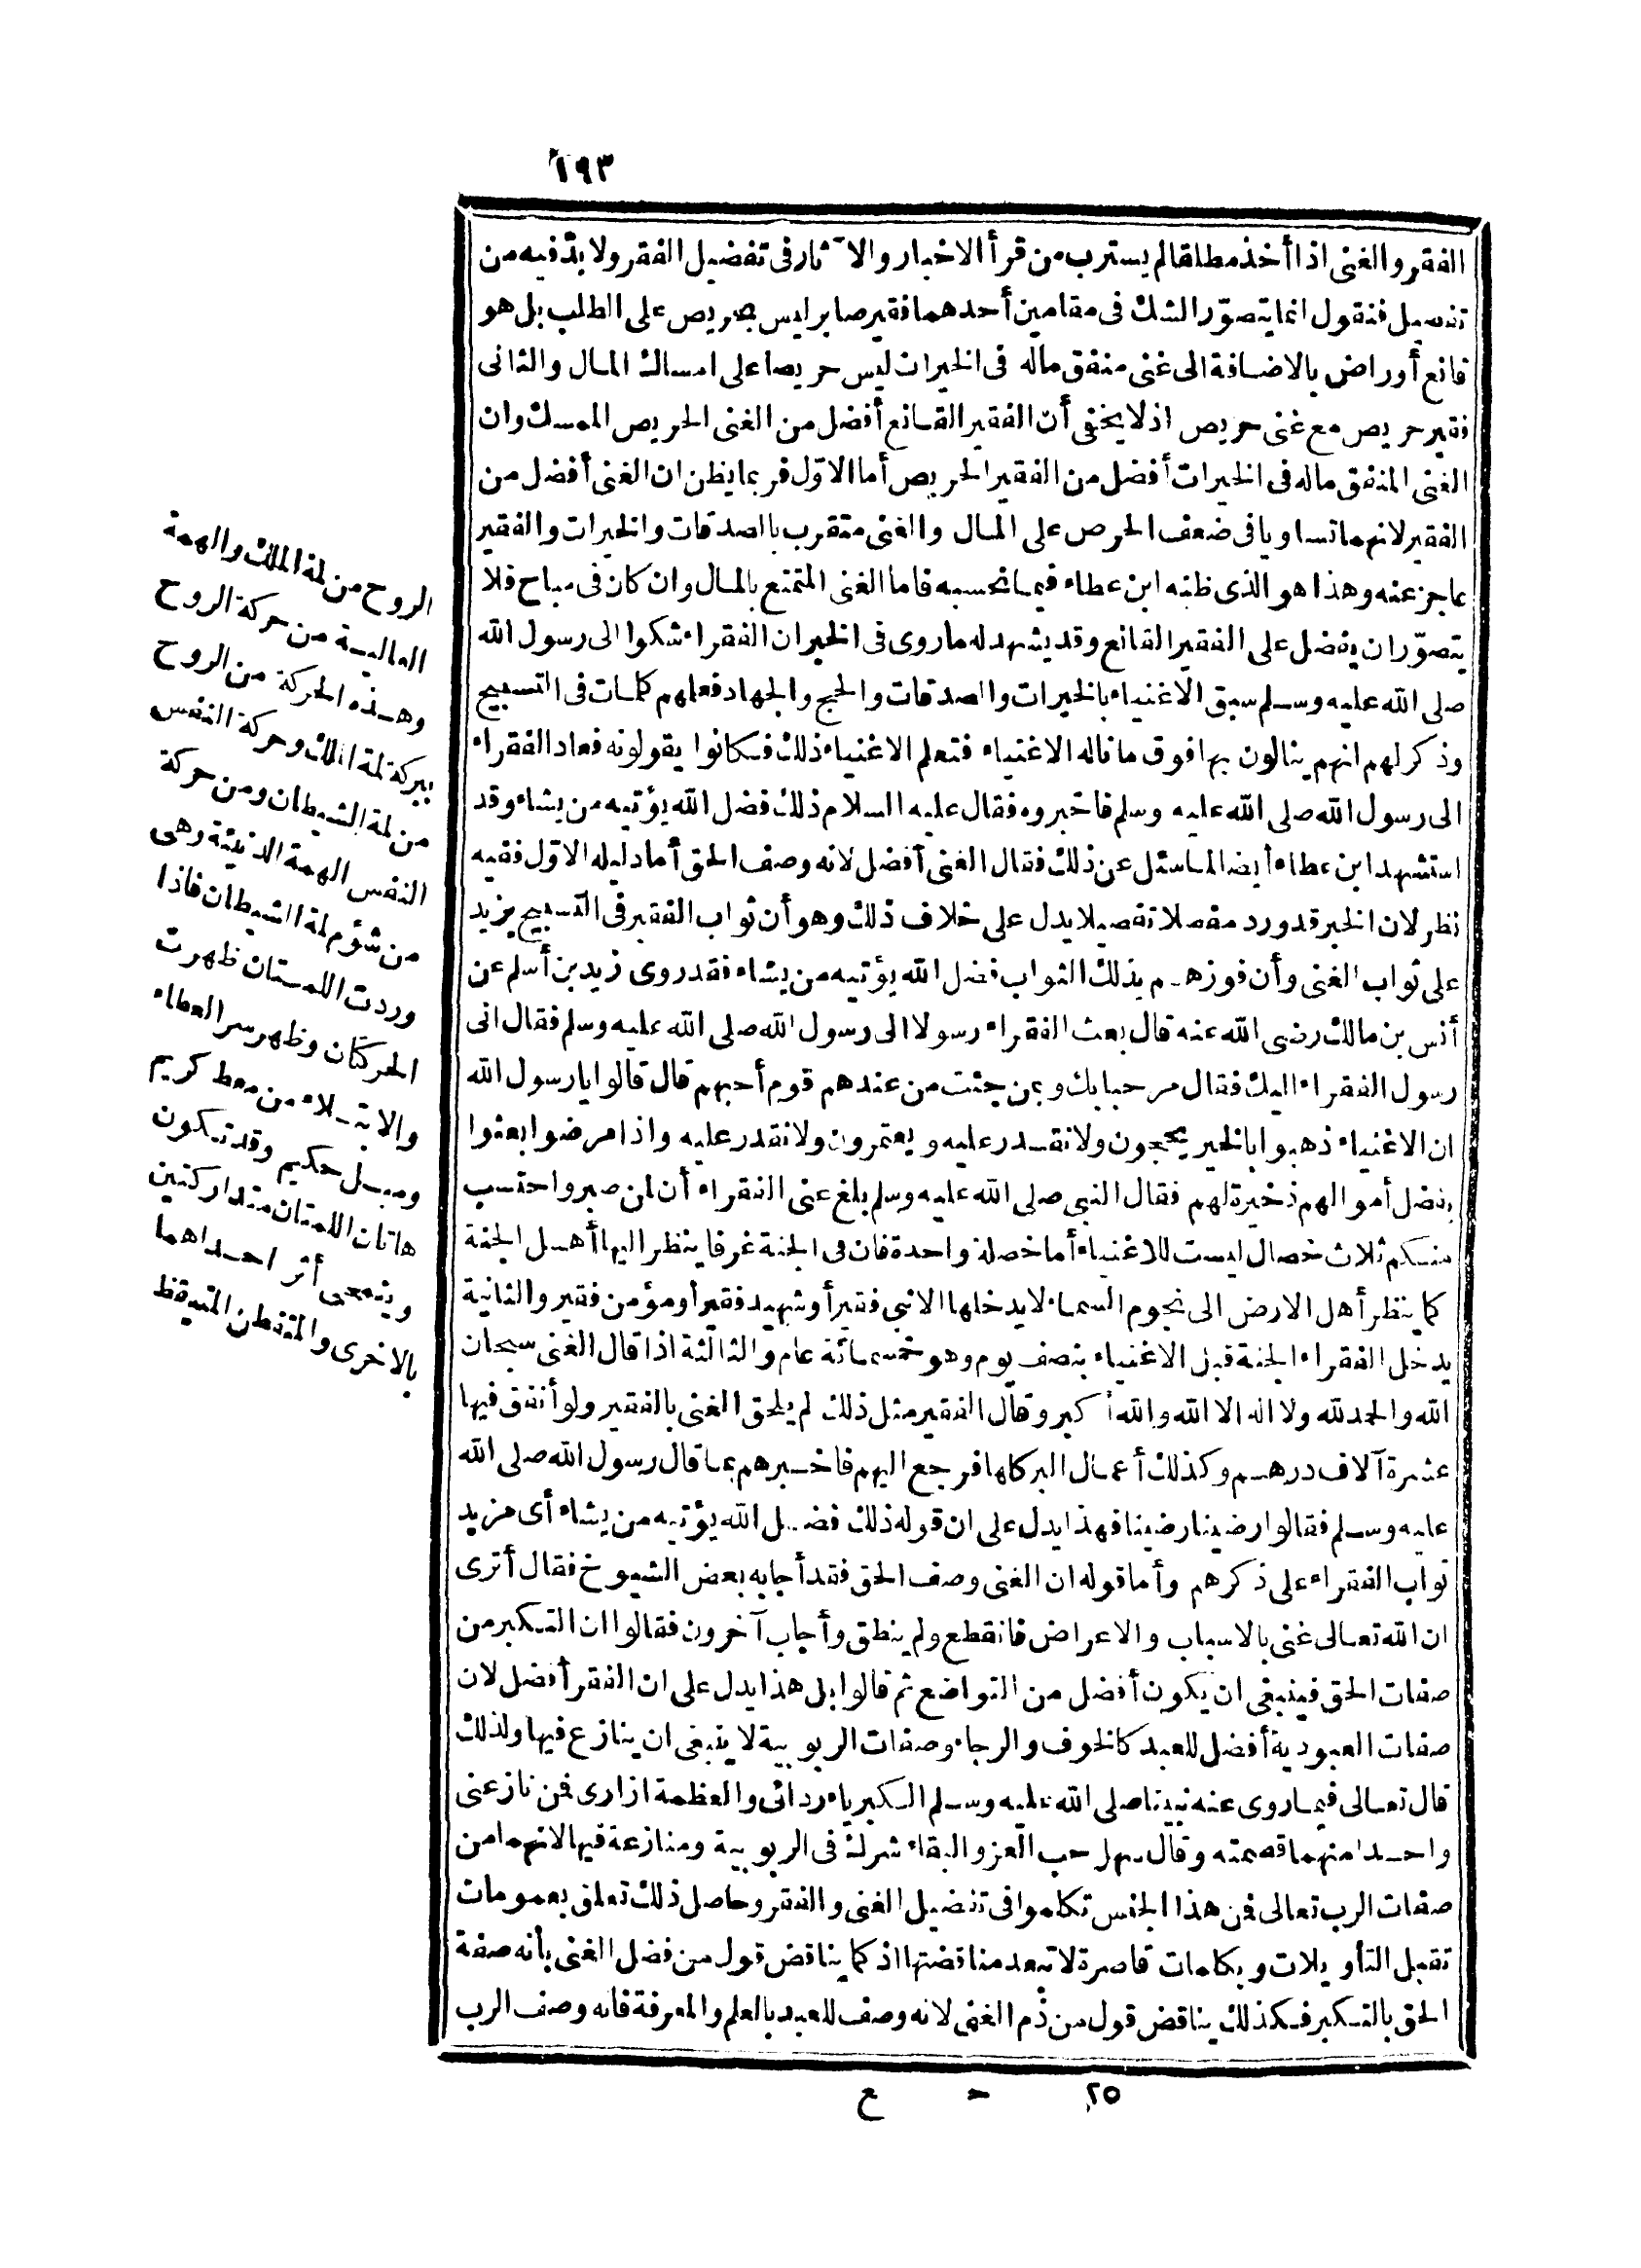 ١٩٣
الفقر والغنى اذا أخذ مطلقا لم يسترب من قرأ الاخبار والآثار فى تفضيل الفقر ولا بدّ فيه من
تفصيل فنقول انما يتصوّر الشك فى مقامين أحدهما فقير صابر ليس بحريص على الطلب بل هو
قانع أو راض بالاضافة الى غنى منفق ماله فى الخيرات ليس حريصا على امساك المال والثانى
فقير حريص مع غنى حريص اذ لا يخفى أن الفقير القانع أفضل من الغنى الحريص الممسك وان
الغنى المنفق ماله فى الخيرات أفضل من الفقير الحريص أما الاوّل فربما يظن ان الغنى أفضل من
الفقير لانهما تساويا فى ضعف الحرص على المال والغنى متقرب بالصدقات والخيرات والفقير
عاجز عنه وهذا هو الذى ظنه ابن عطاء فيما نحسبه فاما الغنى المتمتع بالمال وان كان فى مباح فلا
يتصوّر ان يفضل على الفقير القانع وقد يشهد له ماروى فى الخبر ان الفقراء شكوا الى رسول الله
صلى الله عليه وسلم سبق الاغنياء بالخيرات والصدقات والحج والجهاد فعلمهم كلمات فى التسبيح
وذكر لهم انهم ينالون بها فوق ما ناله الاغنياء فتعلم الاغنياء ذلك فكانوا يقولونه فعاد الفقراء
الى رسول الله صلى الله عليه وسلم فاخبروه فقال عليه السلام ذلك فضل الله يؤتيه من يشاء وقد
استشهد ابن عطاء أيضا لما سئل عن ذلك فقال الغنى أفضل لانه وصف الحق أما دليله الاوّل ففيه
نظر لان الخبر قد ورد مفصلا تفصيلا يدل على خلاف ذلك وهو أن ثواب الفقير فى التسبيح يزيد
على ثواب الغنى وأن فوزهم بذلك الثواب فضل الله يؤتيه من يشاء فقد روى زيد بن أسلم عن
أنس بن مالك رضى الله عنه قال بعث الفقراء رسولا الى رسول الله صلى الله عليه وسلم فقال انى
رسول الفقراء اليك فقال مرحبا بك وبمن جئت من عندهم قوم أحبهم قال قالوا يا رسول الله
ان الاغنياء ذهبوا بالخير يحجون ولا نقدر عليه ويعتمرون ولا نقدر عليه واذا مرضوا بعثوا
بفضل أموالهم ذخيرة لهم فقال النبى صلى الله عليه وسلم بلغ عنى الفقراء أن لمن صبر واحتسب
منكم ثلاث خصال ليست للاغنياء أما خصلة واحدة فان فى الجنة غرفا ينظر اليها أهل الجنة
كما ينظر أهل الارض الى نجوم السماء لا يدخلها الا نبى فقير أو شهيد فقير أو مؤمن فقير والثانية
يدخل الفقراء الجنة قبل الاغنياء بنصف يوم وهو خمسمائة عام والثالثة اذا قال الغنى سبحان
الله والحمد لله ولا اله الا الله والله أكبر وقال الفقير مثل ذلك لم يلحق الغنى بالفقير ولو أنفق فيها
عشرة آلاف درهم وكذلك أعمال البر كلها فرجع اليهم فاخبرهم بما قال رسول الله صلى الله
عليه وسلم فقالوا رضينا رضينا فهذا يدل على ان قوله ذلك فضل الله يؤتيه من يشاء أى مزيد
ثواب الفقراء على ذكرهم وأما قوله ان الغنى وصف الحق فقد أجابه بعض الشيوخ فقال أترى
ان الله تعالى غنى بالاسباب والاعراض فانقطع ولم ينطق وأجاب آخرون فقالوا ان التكبر من
صفات الحق فينبغى ان يكون أفضل من التواضع ثم قالوا بل هذا يدل على ان الفقر أفضل لان
صفات العبودية أفضل للعبد كالخوف والرجاء وصفات الربوبية لا ينبغى ان ينازع فيها ولذلك
قال تعالى فيما روى عنه نبينا صلى الله عليه وسلم الكبرياء ردائى والعظمة ازارى فمن نازعنى
واحدا منهما قصمته وقال سهل حب العز والبقاء شرك فى الربوبية ومنازعة فيها لانهما من
صفات الرب تعالى فمن هذا الجنس تكلموا فى تفضيل الغنى والفقر وحاصل ذلك تعلق بعمومات
تقبل التأويلات وبكلمات قاصرة لا تبعد مناقضتها اذ كما يناقض قول من فضل الغنى بأنه صفة
الحق بالتكبر فكذلك يناقض قول من ذم الغنى لانه وصف للعبد بالعلم والمعرفة فانه وصف الرب
الروح من لمة الملك والهمة
العالية من حركة الروح
وهذه الحركة من الروح
ببركة لمة الملك وحركة النفس
من لمة الشيطان ومن حركة
النفس الهمة الدنيئة وهى
من شؤم لمة الشيطان فاذا
وردت اللمتان ظهرت
الحركتان وظهر سر العطاء
والابتلاء من معط كريم
ومبل حكيم وقد تكون
هاتان اللمتان متداركتين
وينمحى أثر احداهما
بالاخرى والمتفطن المتيقظ
٢٥ - ع